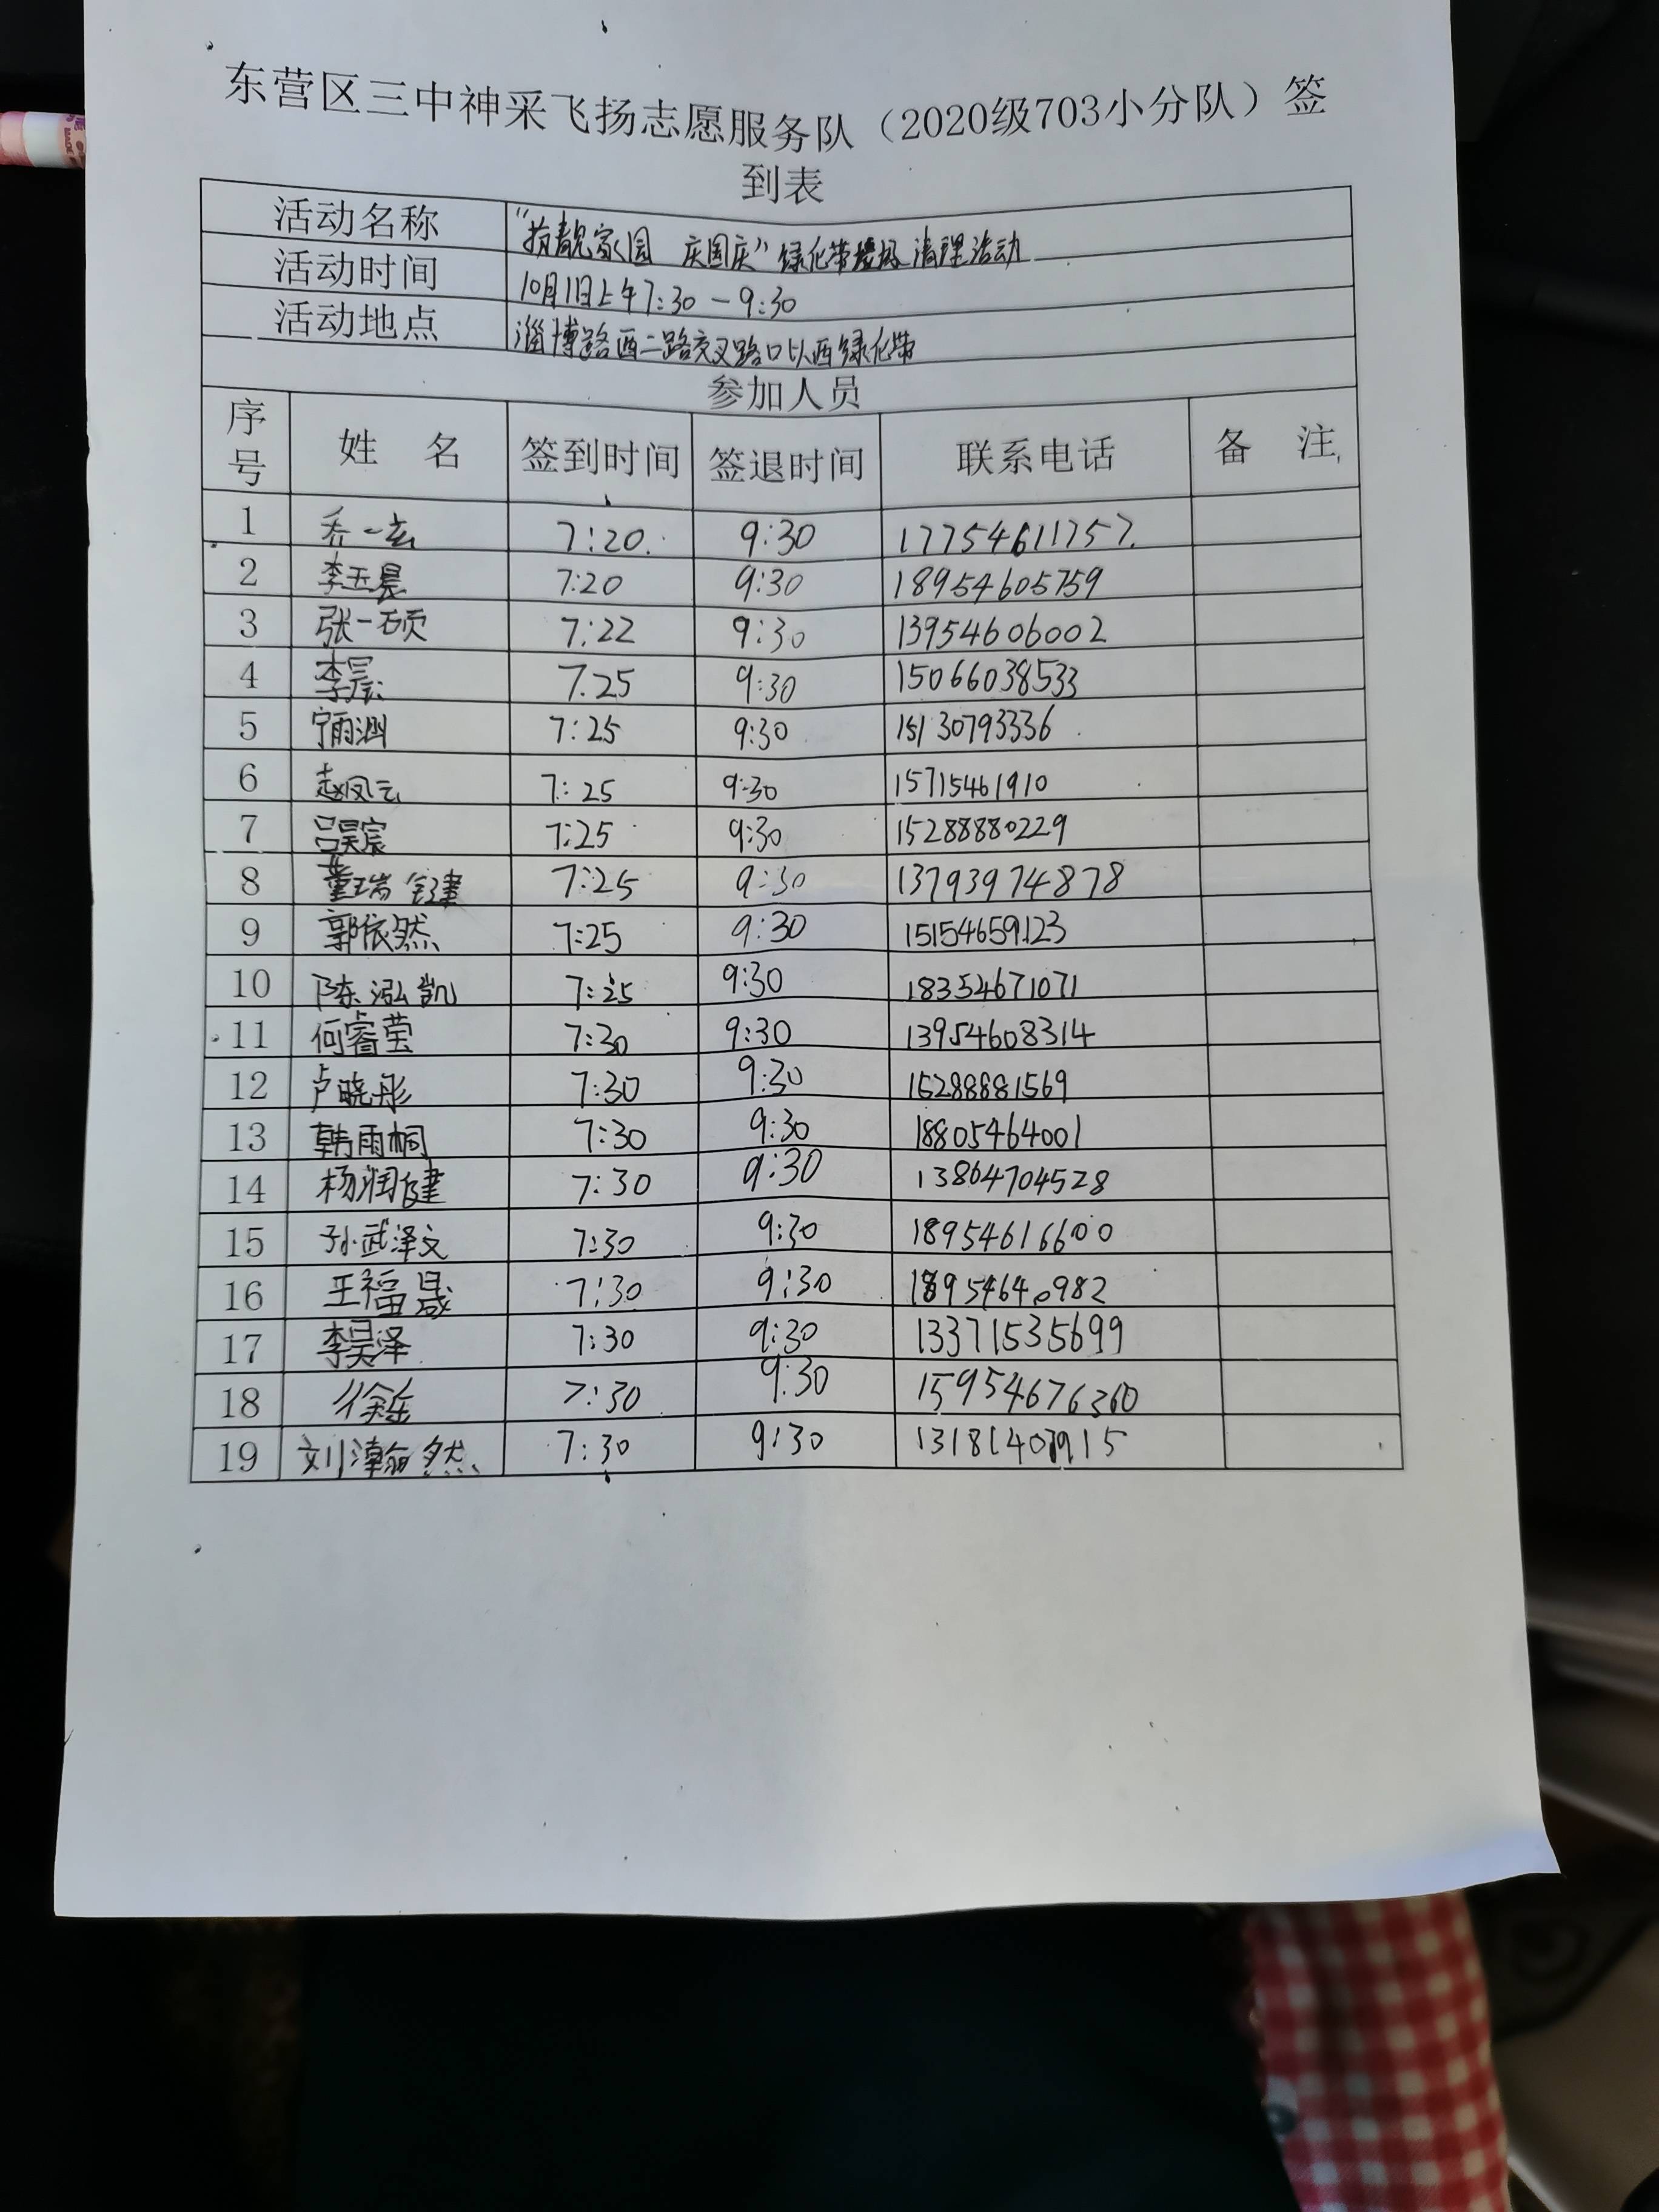 东营区三中神采飞扬志愿服务队（2020级703小分队）签
到表
活动名称 “扮靓家园 庆国庆”绿化带垃圾清理活动
活动时间 10月1日上午7:30-9:30
活动地点 淄博路西二路交叉路口以西绿化带
参加人员
序号 姓 名 签到时间 签退时间 联系电话 备 注
1 乔一 7:20 9:30 17754611757
2 李玉昊 7:20 9:30 18954605759
3 张一硕 7:22 9:30 13954606002
4 李晨 7:25 9:30 15066038533
5 宁雨涵 7:25 9:30 15130793336
6 赵风云 7:25 9:30 15715461910
7 吕昊宸 7:25 9:30 15288880229
8 董瑞键 7:25 9:30 13793974878
9 郭依然 7:25 9:30 15154659123
10 陈泓凯 7:25 9:30 18354671071
11 何睿莹 7:30 9:30 13954608314
12 卢晓彤 7:30 9:30 15288881569
13 韩雨桐 7:30 9:30 18805464001
14 杨润健 7:30 9:30 13864704528
15 孙武泽文 7:30 9:30 18954616600
16 王福晟 7:30 9:30 18954640982
17 李昊泽 7:30 9:30 13371535699
18 徐 7:30 9:30 15954676360
19 刘瀚然 7:30 9:30